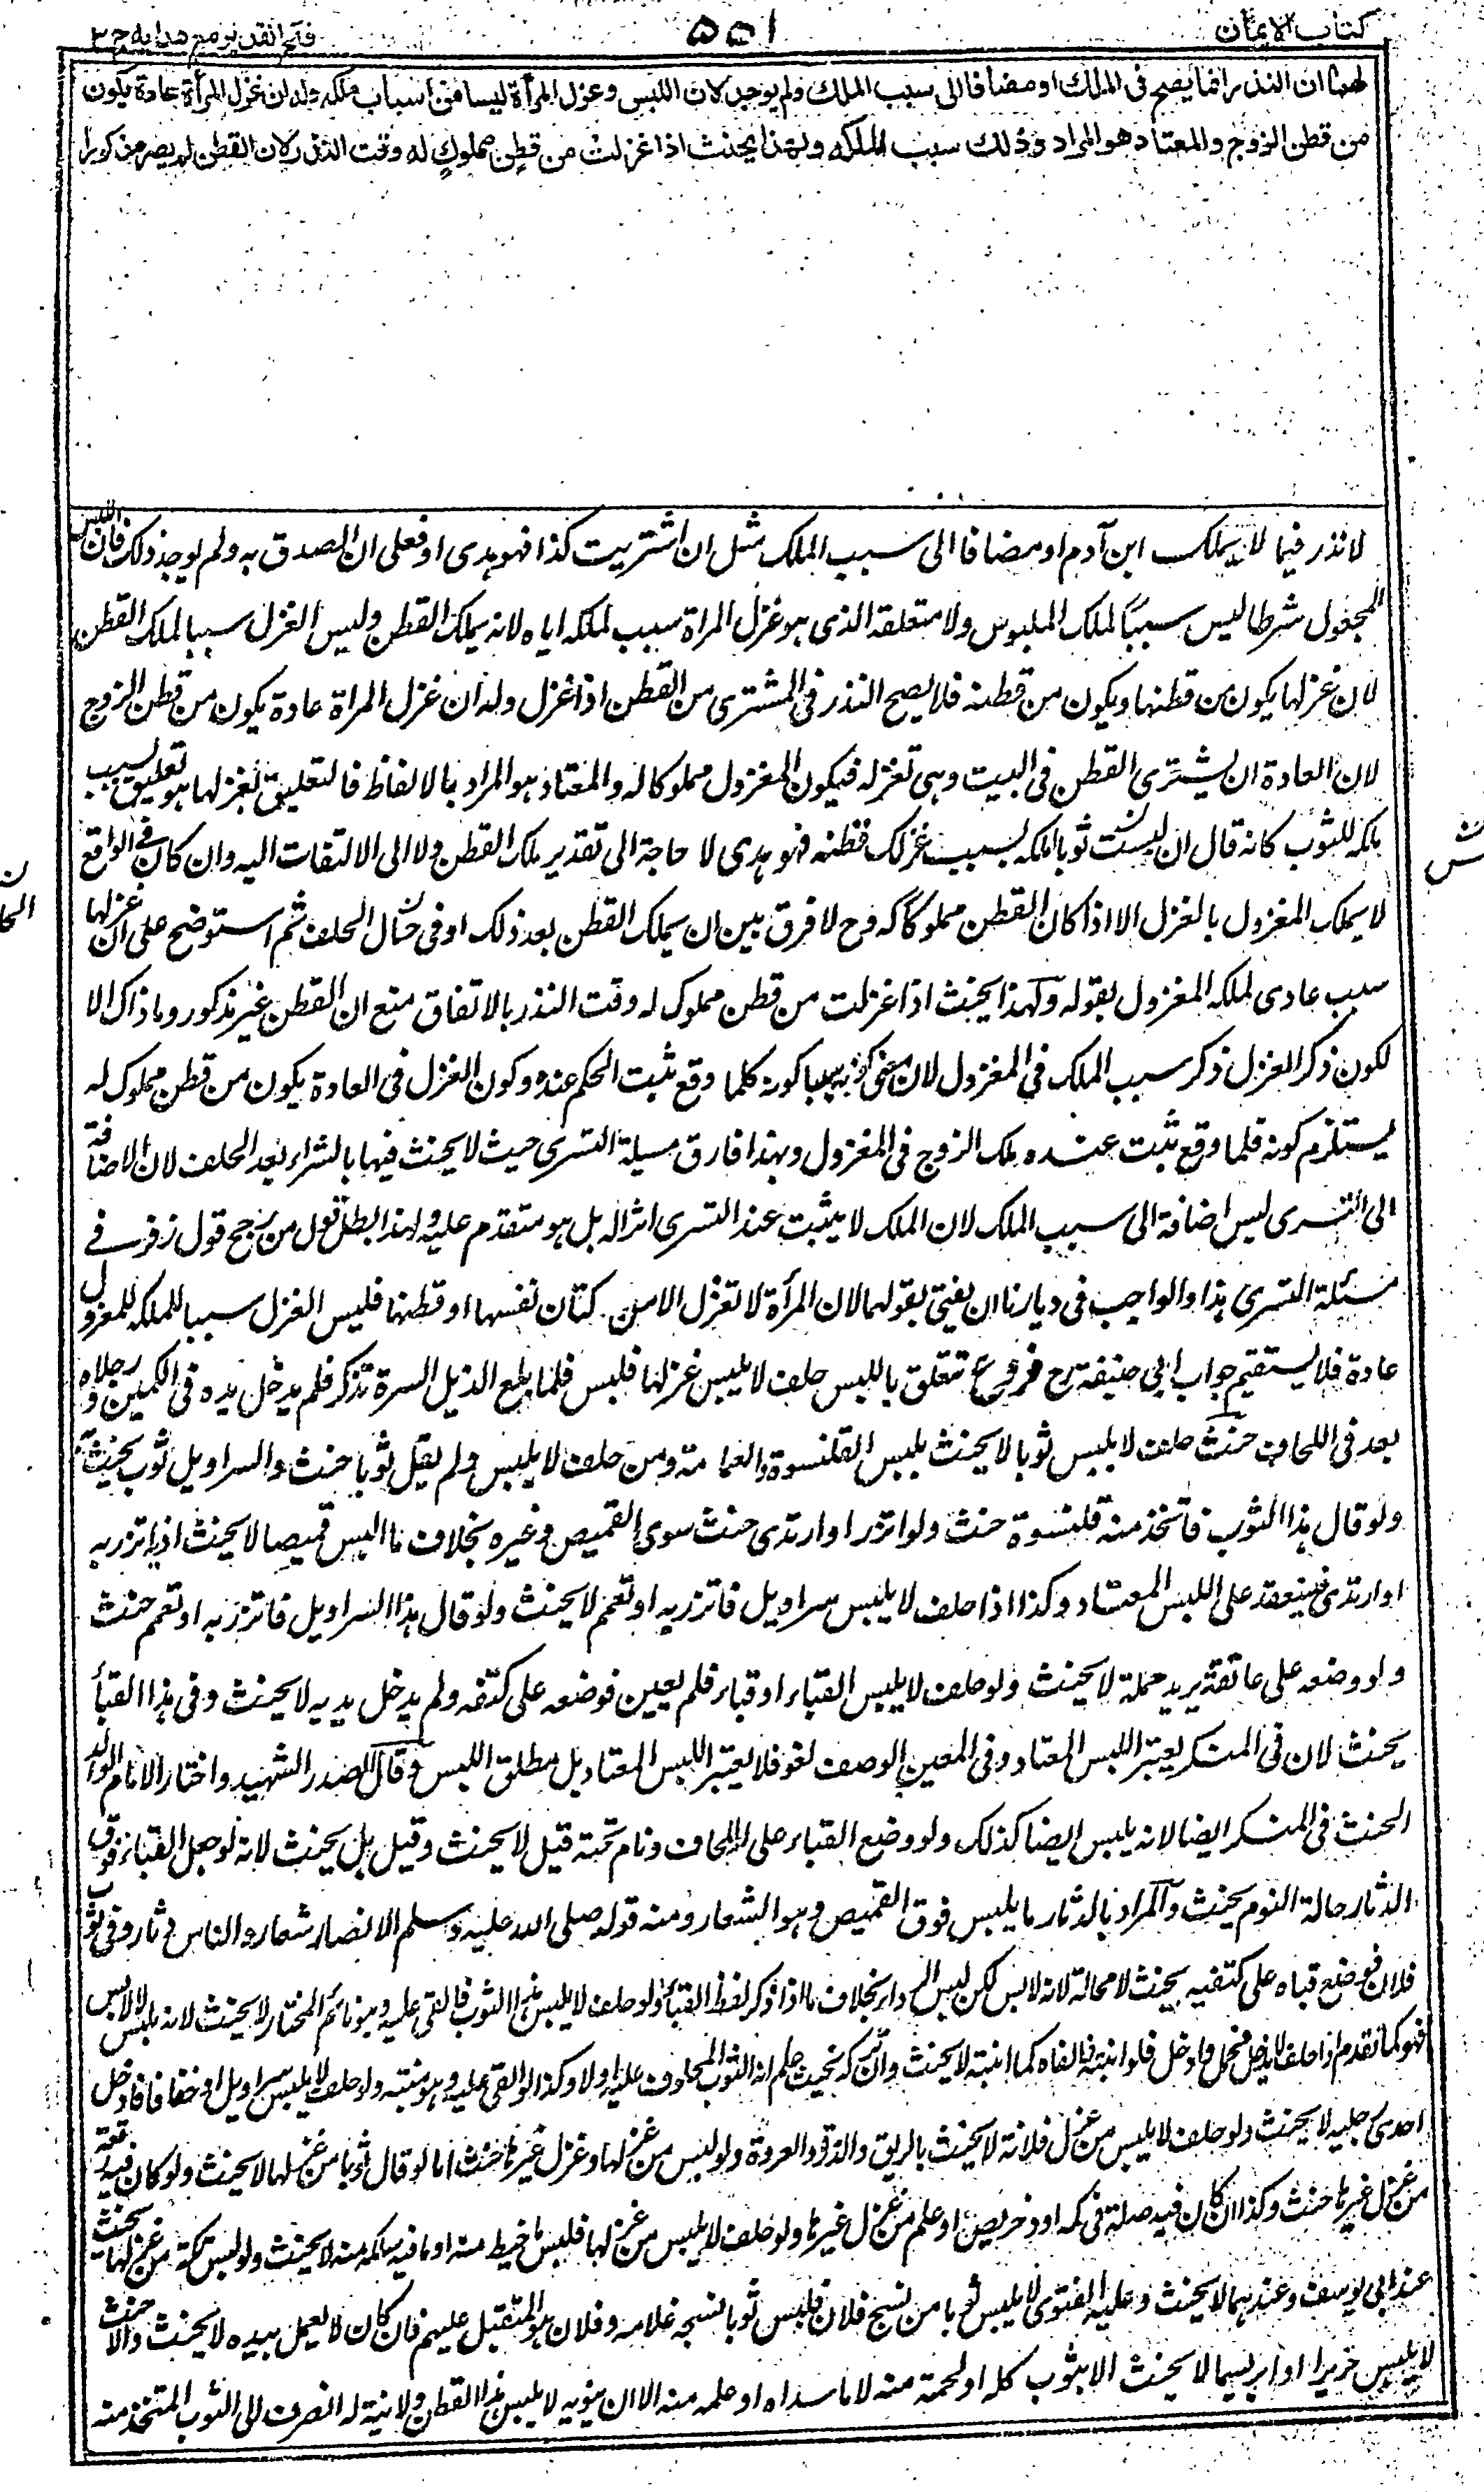 كتاب الايمان
۵۵۱
فتح القدير مع هدايه ج ۲
لهما ان النذر انما يصح فى الملك او مضافا الى سبب الملك ولم يوجد لان اللبس وغزل المرأة ليسا من اسباب ملكه وله ان غزل المرأة عادة يكون
من قطن الزوج والمعتاد هو المراد وذلك سبب لملكه ولهذا يحنث اذا غزلت من قطن مملوك له وقت النذر لان القطن لم يصر مذكورا
لا نذر فيما لا يملك ابن آدم او مضافا الى سبب الملك مثل ان اشتريت كذا فهو هدى او فعلى ان اتصدق به ولم يوجد ذلك فان اللبس
المجعول شرطا ليس سببا لملك الملبوس ولا متعلقه الذى هو غزل المرأة سبب لملكه اياه لانه يملك القطن وليس الغزل سببا لملك القطن
لان غزلها يكون من قطنها ويكون من قطنه فلا يصح النذر فى المشترى من القطن اذا غزل وله ان غزل المرأة عادة يكون من قطن الزوج
لان العادة ان يشترى القطن فى البيت وهى تغزله فيكون المغزول مملوكا له والمعتاد هو المراد بالالفاظ فالتعليق بغزلها هو تعليق بسبب
ملكه للثوب كانه قال ان لبست ثوبا املكه بسبب غزلك قطنه فهو هدى لا حاجة الى تقدير ملك القطن ولا الى الالتفات اليه وان كان فى الواقع
لا يملك المغزول بالغزل الا اذا كان القطن مملوكا له وح لا فرق بين ان يملك القطن بعد ذلك او فى حال الحلف ثم استوضح على ان غزلها
سبب عادى لملكه المغزول بقوله ولهذا يحنث اذا غزلت من قطن مملوك له وقت النذر بالاتفاق مع ان القطن غير مذكور وما ذاك الا
لكون ذكر الغزل ذكر سبب الملك فى المغزول لان معنى كونه سببا كونه كلما وقع ثبت الحكم عنده وكون الغزل فى العادة يكون من قطن مملوك له
يستلزم كونه كلما وقع ثبت عنده ملك الزوج فى المغزول وبهذا فارق مسئلة التسرى حيث لا يحنث فيها بالشراء بعد الحلف لان الاضافة
الى التسرى ليس اضافة الى سبب الملك لان الملك لا يثبت عند التسرى اثرا له بل هو متقدم عليه ولهذا بطل قول من رجح قول زفر فى
مسئلة التسرى هذا والواجب فى ديارنا ان يفتى بقولهما لان المرأة لا تغزل الا من كتان نفسها او قطنها فليس الغزل سببا لملكه للمغزول
عادة فلا يستقيم جواب ابى حنيفة رح فروع تتعلق باللبس حلف لا يلبس غزلها فلبس فلما بلغ الذيل السرة تذكر فلم يدخل يده فى الكمين ورجلاه
بعد فى اللحاف حنث حلف لا يلبس ثوبا لا يحنث بلبس القلنسوة والعمامة ومن حلف لا يلبس ولم يقل ثوبا حنث والسراويل ثوب يحنث به
ولو قال هذا الثوب فاتخذ منه قلنسوة حنث ولو اتزر او ارتدى حنث سوى القميص وغيره بخلاف ما البس قميصا لا يحنث اذا اتزر به
او ارتدى فينعقد على اللبس المعتاد وكذا اذا حلف لا يلبس سراويل فاتزر به او تعمم لا يحنث ولو قال هذا السراويل فاتزر به او تعمم حنث
ولو وضعه على عاتقه يريد حمله لا يحنث ولو حلف لا يلبس القباء او قباء فلم يعين فوضعه على كتفه ولم يدخل يديه لا يحنث وفى هذا القباء
يحنث لان فى المنكر يعتبر اللبس المعتاد وفى المعين الوصف لغو فلا يعتبر اللبس المعتاد بل مطلق اللبس وقال الصدر الشهيد واختار الامام الوالد
الحنث فى المنكر ايضا لانه يلبس ايضا كذلك ولو وضع القباء على اللحاف ونام تحته قيل لا يحنث وقيل بل يحنث لانه لو جعل القباء فوق
الدثار حالة النوم يحنث والمراد بالدثار ما يلبس فوق القميص وهو الشعار ومنه قوله صلى الله عليه وسلم الانصار شعار والناس دثار وفى ثوب
فلان فوضع قباه على كتفيه يحنث لا محالة لانه لابس لكن لبس الرداء بخلاف ما اذا ذكر لفظ القباء ولو حلف لا يلبس هذا الثوب فالقى عليه وهو نائم المختار لا يحنث لانه ملبس لا لابس
فهو كما تقدم اذا حلف لا يدخل فحمل وادخل فلو انتبه فالقاه كما انتبه لا يحنث وان تركه يحنث علم انه الثوب المحلوف عليه او لا وكذا لو القى عليه وهو منتبه ولو حلف لا يلبس سراويل او خفا فادخل
احدى رجليه لا يحنث ولو حلف لا يلبس من غزل فلانة لا يحنث بالزيق والزر والعروة ولو لبس من غزلها وغزل غيرها حنث اما لو قال ثوبا من غزلها لا يحنث ولو كان فيه رقعة
من غزل غيرها حنث وكذا ان كان فيه صلة فى كمه او دخريص او علم من غزل غيرها ولو حلف لا يلبس من غزلها فلبس ما خيط منه او ما فيه سلكة منه لا يحنث ولو لبس تكة من غزلها يحنث
عند ابى يوسف وعندهما لا يحنث وعليه الفتوى لا يلبس ثوبا من نسج فلان فلبس ثوبا نسجه غلامه وفلان هو المتقبل عليهم فان كان لا يعمل بيده لا يحنث والا حنث
لا يلبس حريرا او ابريسما لا يحنث الا بثوب كله او لحمته منه لا ما سداه او علمه منه الا ان ينويه لا يلبس هذا القطن ولا نية له انصرف الى الثوب المتخذ منه